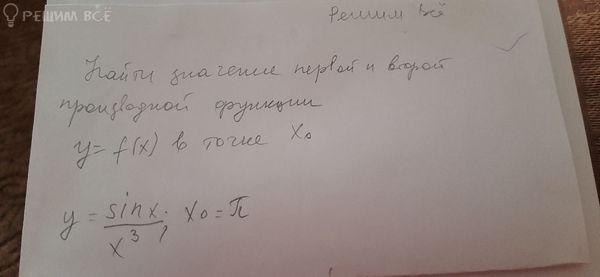 РЕШИМ ВСЁ
Решим всё
Найти значение первой и второй
производной функции
y = f(x) в точке x₀
y = sinx / x³ ; x₀ = π